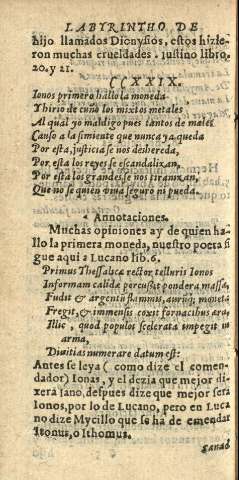 LABYRINTHO DE
hijo llamados Dionysios, estos hizie-
ron muchas crueldades. Iustino libro.
20. y 21.
CCXXIX.
Ionos primero hallo la moneda
Y hirio de cuño los mixtos metales
Al qual yo maldigo pues tantos de males
Causo a la simiente que nunca ya queda
Por esta, justicia se nos deshereda,
Por esta los reyes se escandalizan,
Por esta los grandes se nos tiranizan,
Que no se quien viua seguro ni pueda.
Annotaciones.
Muchas opiniones ay de quien ha-
llo la primera moneda, nuestro poeta si
gue aqui a Lucano lib. 6.
Primus Thessalicæ rector telluris Ionos
Informam calidæ percussit pondera massæ,
Fudit & argentũ flammis, aurũq; moneta
Fregit, & immensis coxit fornacibus æra,
Illic, quod populos scelerata impegit in
arma,
Diuitias numerare datum est:
Antes se leya ( como dize el comen-
dador) Ionas, y el dezia que mejor di-
xera Iano, despues dize que mejor sera
Ionos, por lo de Lucano, pero en Luca
no dize Mycillo que se ha de emendar
Itonus, o Ithomus.
ganad